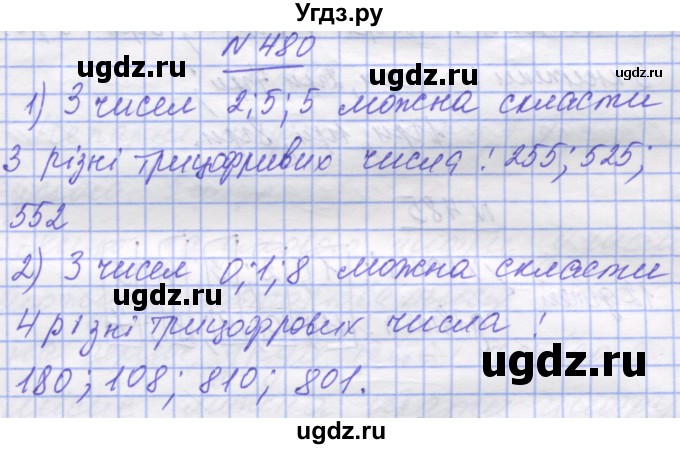 Угдз.ру
ugdz.ru ugdz.ru
№ 480
1) З чисел 2; 5; 5 можна скласти
ugdz.ru
3 різні трицифривих числа: 255; 525;
552
ugdz.ru ugdz.ru
2) З чисел 0; 1; 8 можна скласти
4 різні трицофрових числа:
ugdz.ru
180; 108; 810; 801.
ugdz.ru ugdz.ru
ugdz.ru